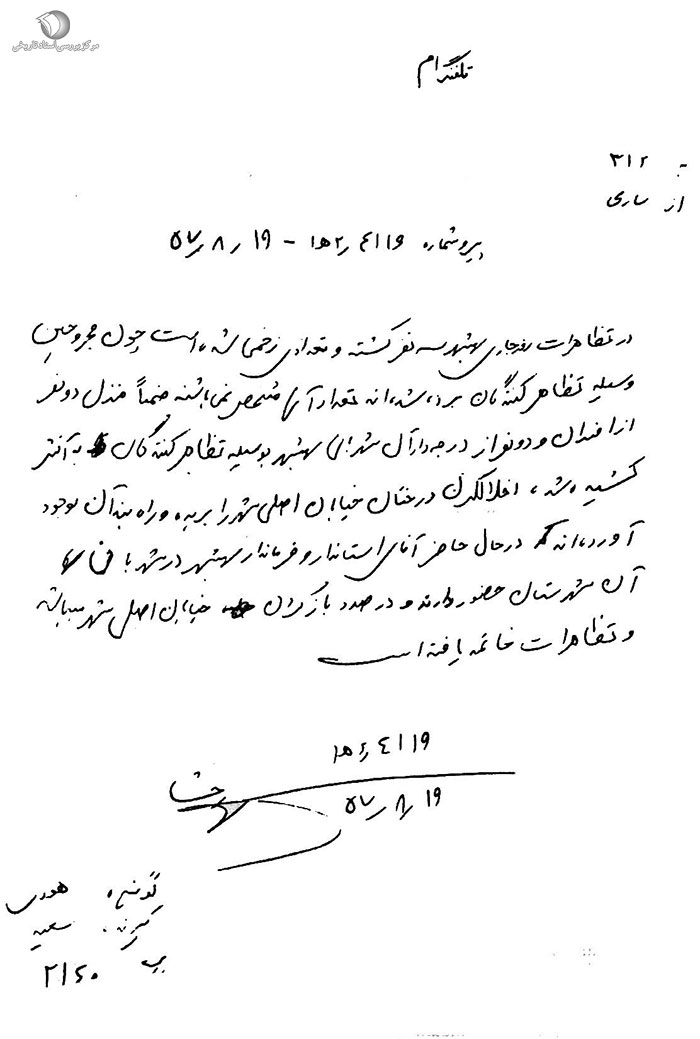 مرکز بررسی اسناد تاریخی
تلفنگرام
به ۳۱۲
از ساری
پیرو شماره ۴۱۱۹ / ۱ه۲ – ۱۹ /۸ /۵۷
در تظاهرات بهشهر سه نفر کشته و تعدادی زخمی شده است چون مجروحین
وسیله تظاهرکنندگان برده شده‌اند تعداد آنها مشخص نمی‌باشد ضمناً منزل دو نفر
از افسران و دو نفر از درجه‌داران شهربانی بهشهر بوسیله تظاهرکنندگان به آتش
کشیده شد، اخلالگران درختان خیابان اصلی شهر را بریده و راه‌بندان بوجود
آورده‌اند که در حال حاضر آقای استاندار و فرماندار بهشهر در شهر با
آن شهرستان حضور دارند و در صدد باز کردن خیابان اصلی شهر میباشند
و تظاهرات خاتمه یافته است
۴۱۱۹ / ۱ه۲
۱۹ /۸ /۵۷
گوینده هودی
گیرنده سعید
س ۲۱۶۰